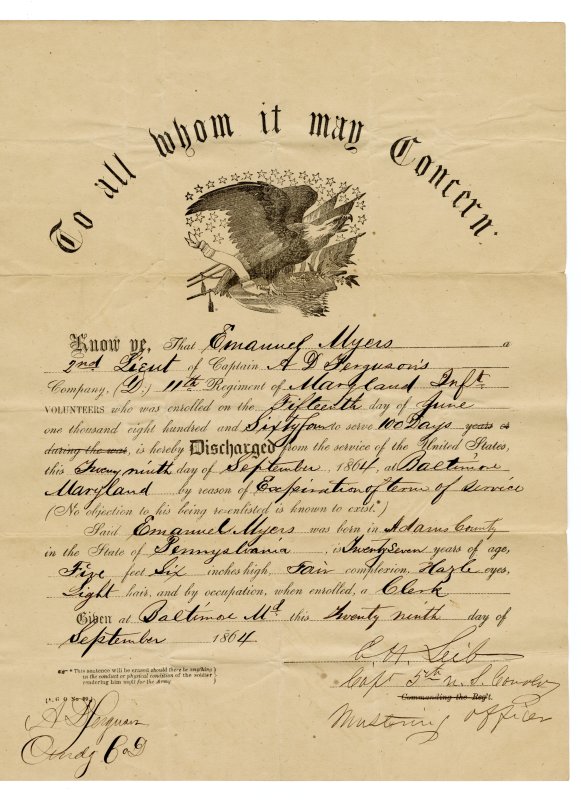 To all whom it may Concern.
Know ye, That Emanuel Myers a
2nd Lieut of Captain A D Ferguson's
Company, (D.) 11th Regiment of Maryland Inft.
VOLUNTEERS who was enrolled on the Fifteenth day of June
one thousand eight hundred and Sixtyfour to serve 100 Days years or
during the war, is hereby Discharged from the service of the United States,
this Twenty ninth day of September, 1864, at Baltimore
Maryland by reason of Expiration of term of service
(No objection to his being re-enlisted is known to exist.*)
Said Emanuel Myers was born in Adams County
in the State of Pennyslvania, is Twenty Seven years of age,
Five feet Six inches high, Fair complexion, Hazle eyes,
Light hair, and by occupation, when enrolled, a Clerk
Given at Baltimore Md. this Twenty ninth day of
September 1864.
C H Leib
Capt 5th U. S. Cavalry
Commanding the Reg't.
Mustering Officer
* This sentence will be erased should there be anything
in the conduct or physical condition of the soldier
rendering him unfit for the Army
A D Ferguson
Comdg Co D